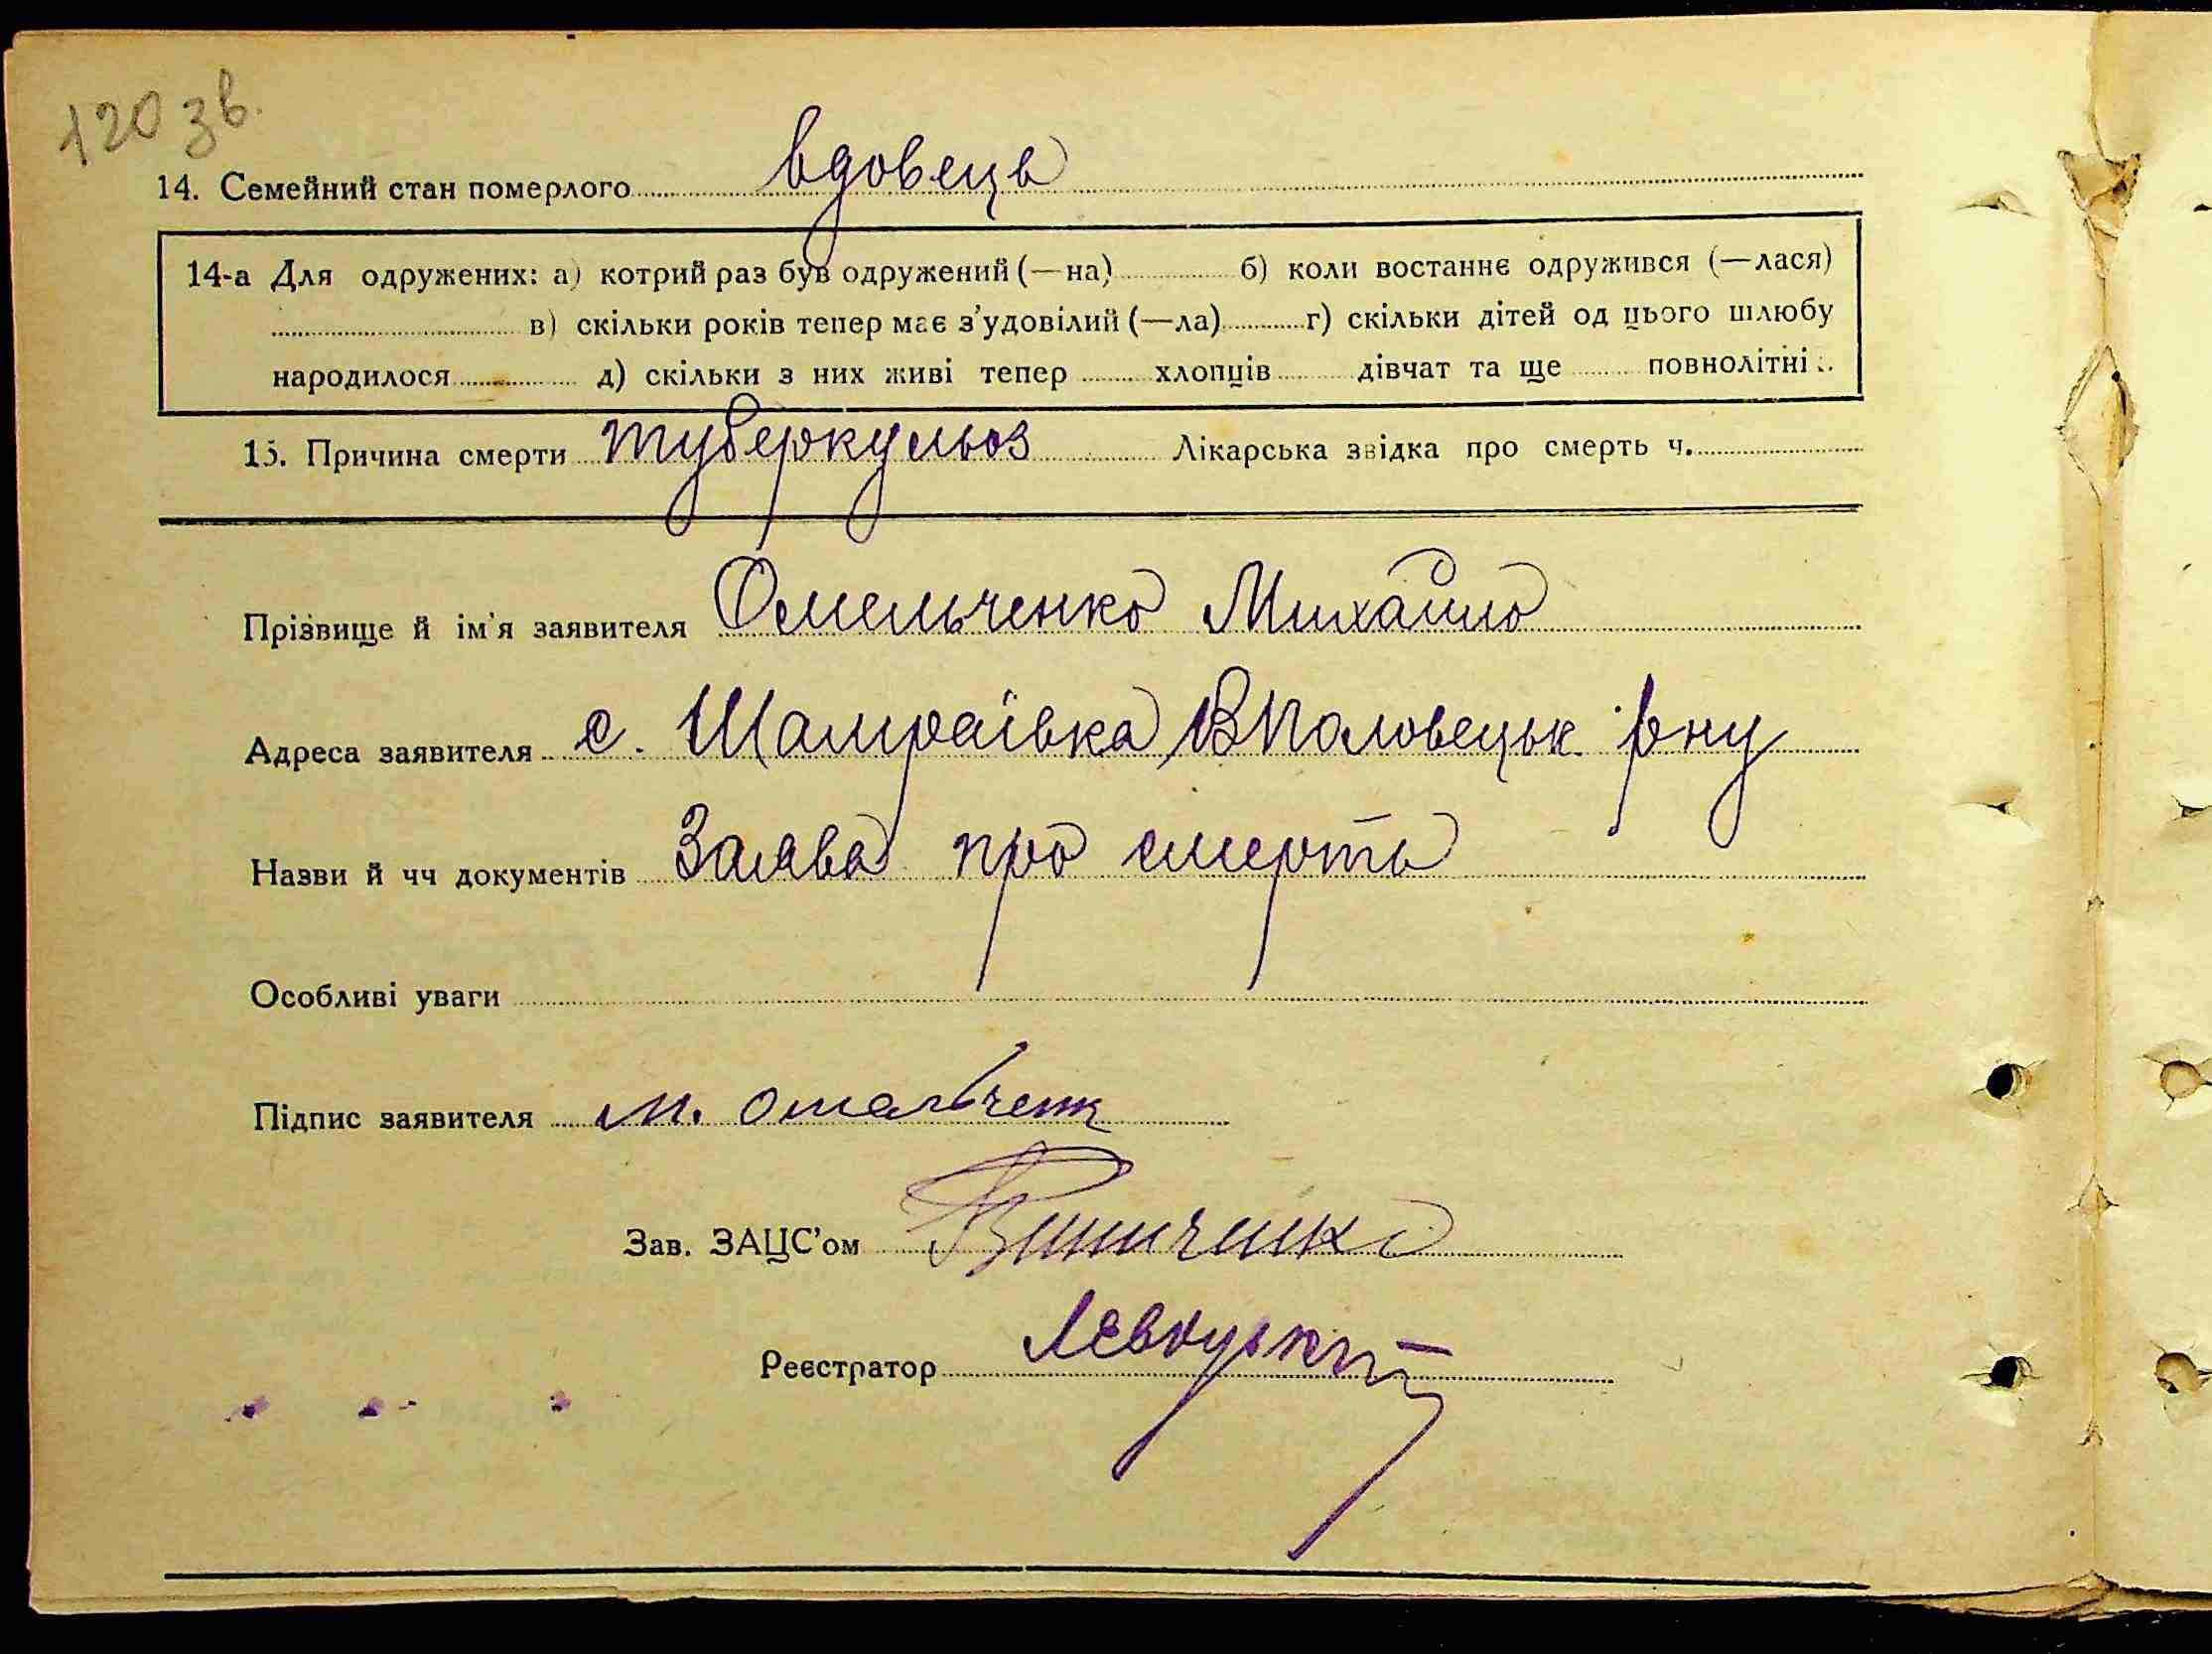 120 зв.
14. Семейний стан померлого вдовець
14-а Для одружених: а) котрий раз був одружений (—на) б) коли востаннє одружився (—лася)
в) скільки років тепер має з'удовілий (—ла) г) скільки дітей од цього шлюбу
народилося д) скільки з них живі тепер хлопців дівчат та ще повнолітні
15. Причина смерти туберкульоз Лікарська звідка про смерть ч.
Прізвище й ім'я заявителя Омельченко Михайло
Адреса заявителя с. Шамраївка ВПоловецьк. рну
Назви й чч документів Заява про смерть
Особливі уваги
Підпис заявителя М. Омельченк
Зав. ЗАЦС'ом
Реєстратор